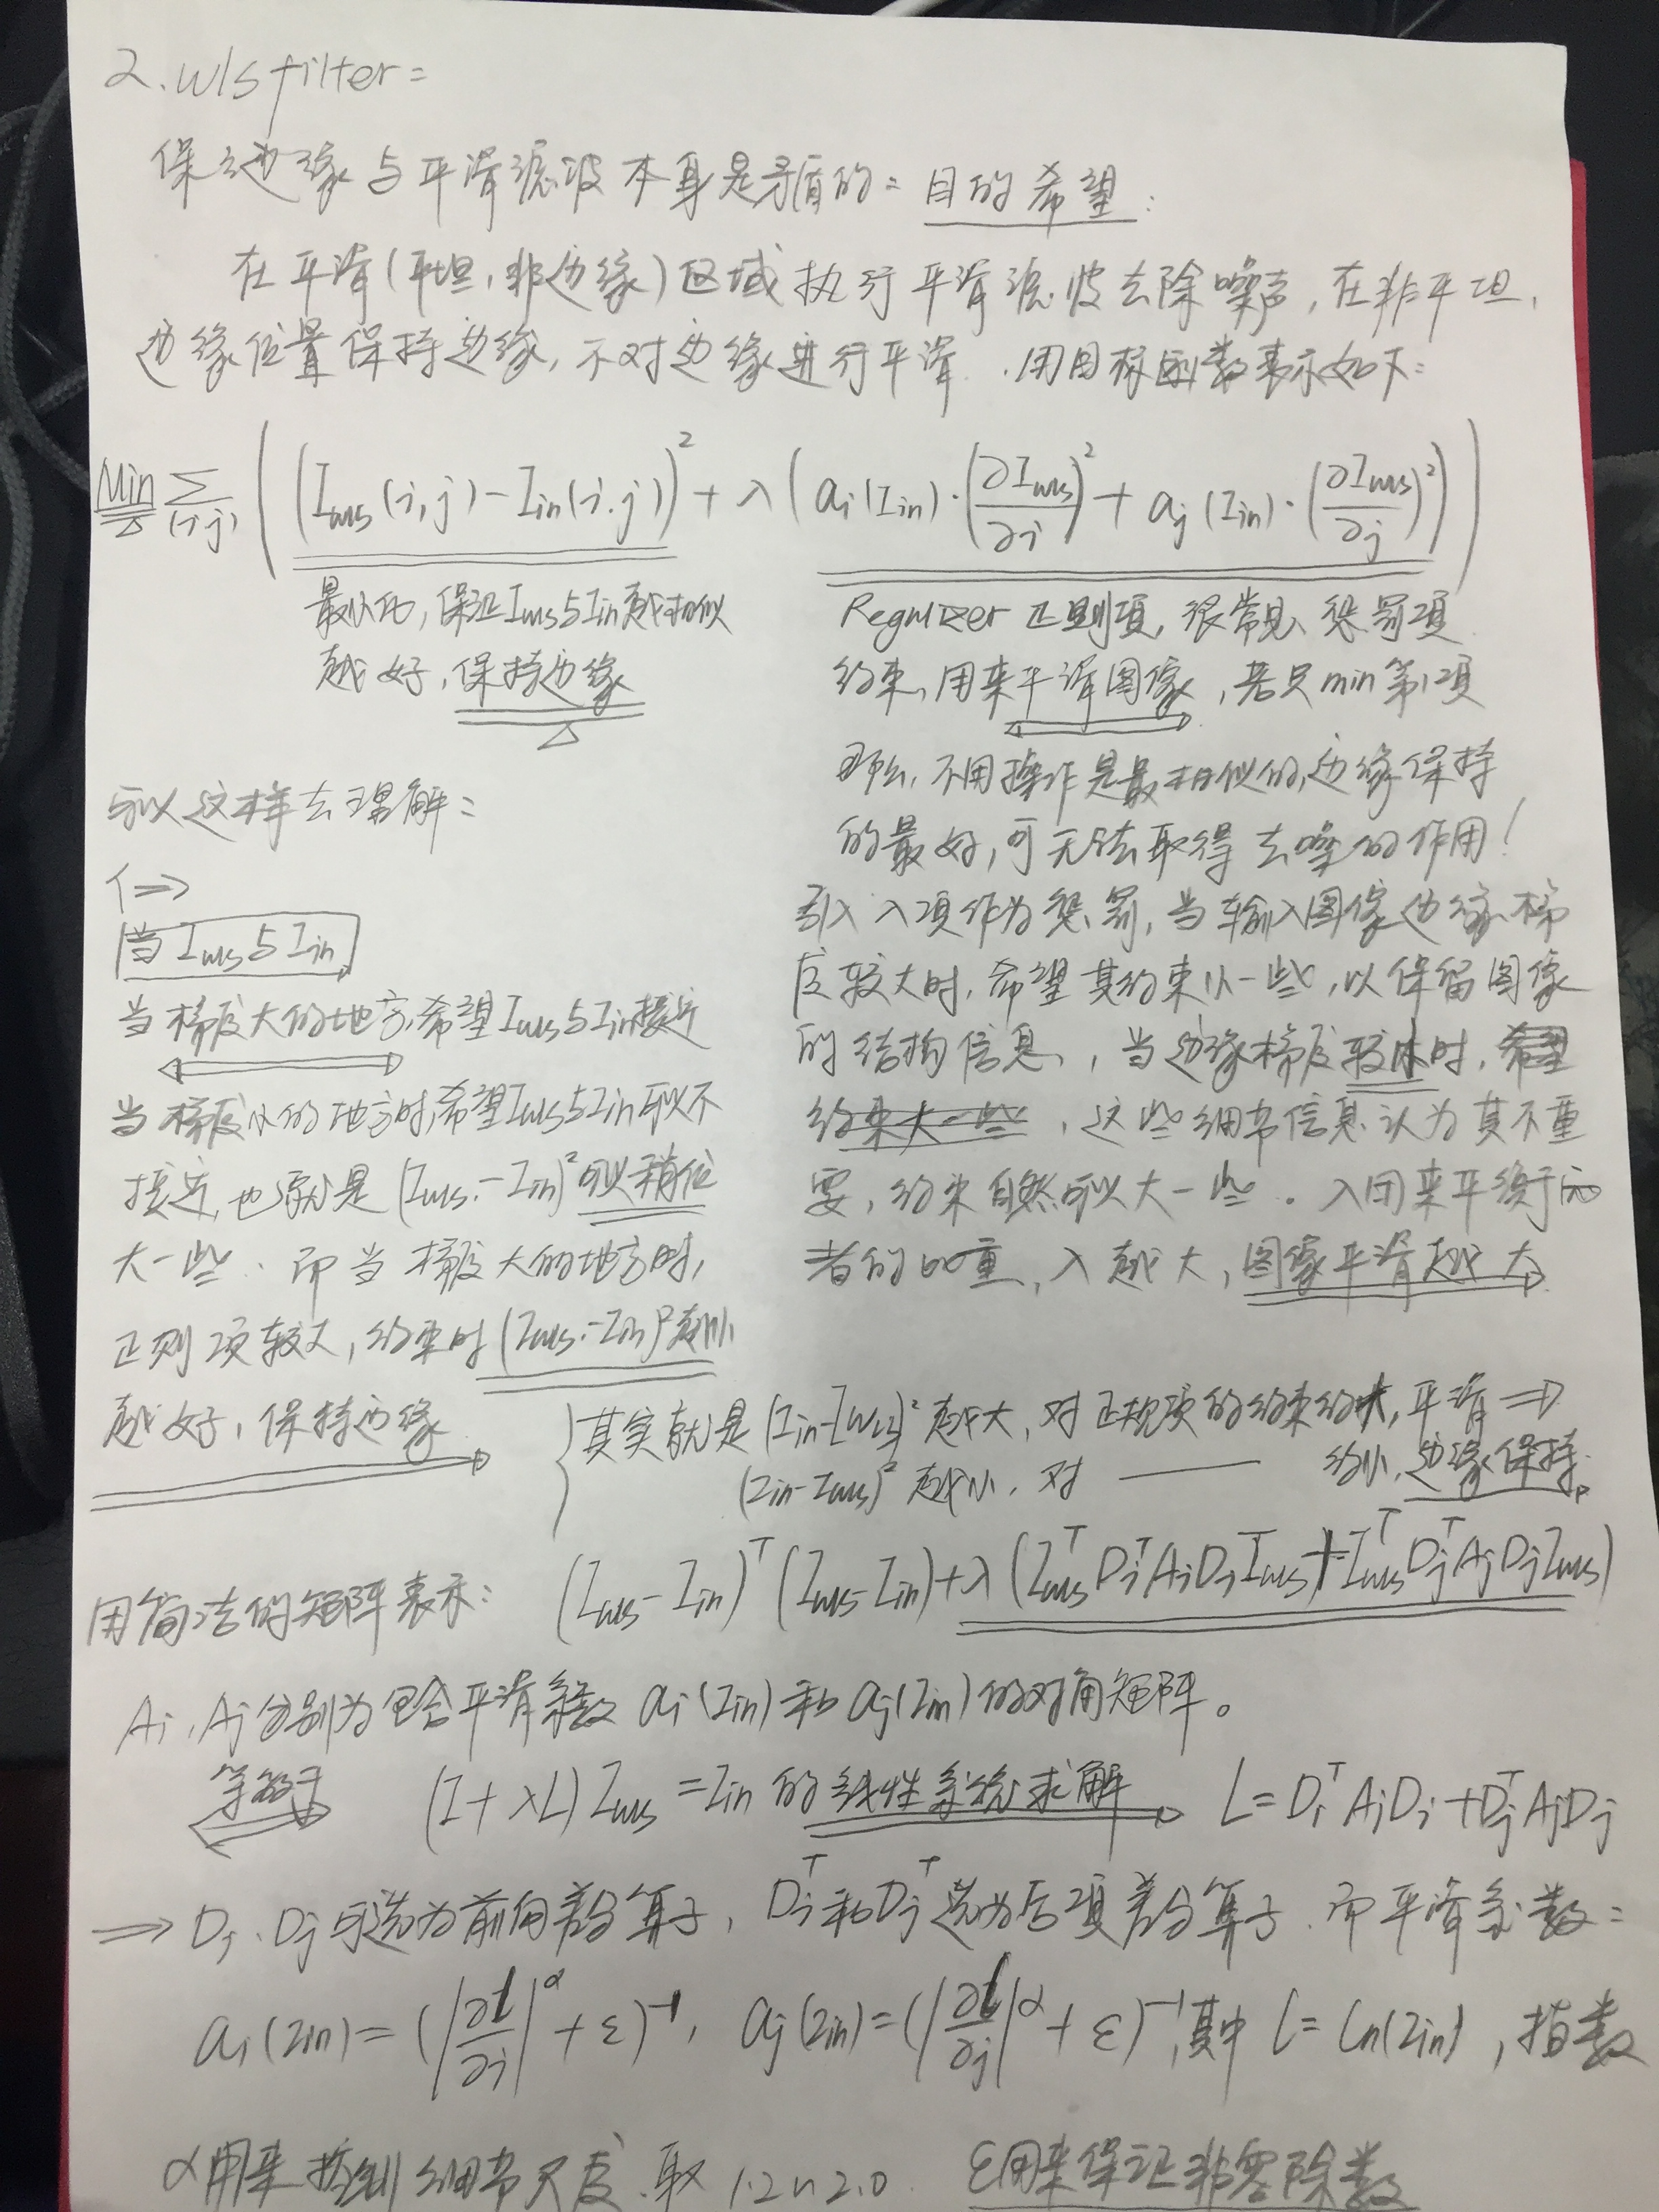 2. wls filter:
保边缘与平滑滤波本身是矛盾的: 目的希望:
在平滑(平坦,非边缘)区域执行平滑滤波去除噪声,在非平坦,
边缘位置保持边缘,不对边缘进行平滑. 用目标函数表示如下:
Min Σ(i,j) ( (I_wls(i,j) - I_in(i,j))² + λ ( a_i(I_in)·(∂I_wls/∂i)² + a_j(I_in)·(∂I_wls/∂j)² ) )
最小化,保证I_wls与I_in越相似
越好,保持边缘
可以这样去理解:
1⇒
当I_wls与I_in
当梯度大的地方,希望I_wls与I_in接近
当梯度小的地方时,希望I_wls与I_in可以不
接近,也就是(I_wls-I_in)²可以稍微
大一些. 而当梯度大的地方时,
正则项较大,约束时(I_wls-I_in)²越小
越好,保持边缘
正则项,很常见,惩罚项
约束,用来平滑图像,若只min第1项
那么,不用操作是最相似的,边缘保持
的最好,可无法取得去噪的作用!
引入λ项作为惩罚,当输入图像边缘梯
度较大时,希望其约束小一些,以保留图像
的结构信息,当边缘梯度较小时,希望
约束大一些,这些细节信息认为其不重
要,约束自然可以大一些。λ用来平衡两
者的比重,λ越大,图像平滑越大
其实就是(I_in-I_wls)²越大,对正规项的约束约大,平滑⇒
(I_in-I_wls)²越小,对 —— 约小,边缘保持.
用简洁的矩阵表示: (I_wls-I_in)^T (I_wls-I_in)+λ(I_wls^T D_i^T A_i D_i I_wls + I_wls^T D_j^T A_j D_j I_wls)
A_i,A_j分别为包含平滑系数 a_i(I_in)和a_j(I_in)的对角矩阵。
等效于 (I+λL)I_wls=I_in 的线性系统求解 L=D_i^T A_i D_i+D_j^T A_j D_j
⇒ D_i、D_j可选为前向差分算子, D_i^T和D_j^T选为后项差分算子.而平滑系数:
a_i(I_in)=(|∂l/∂i|^α+ε)^-1, a_j(I_in)=(|∂l/∂j|^α+ε)^-1,其中 l=ln(I_in),指数
α用来控制细节尺度.取1.2~2.0. ε用来保证非零除数